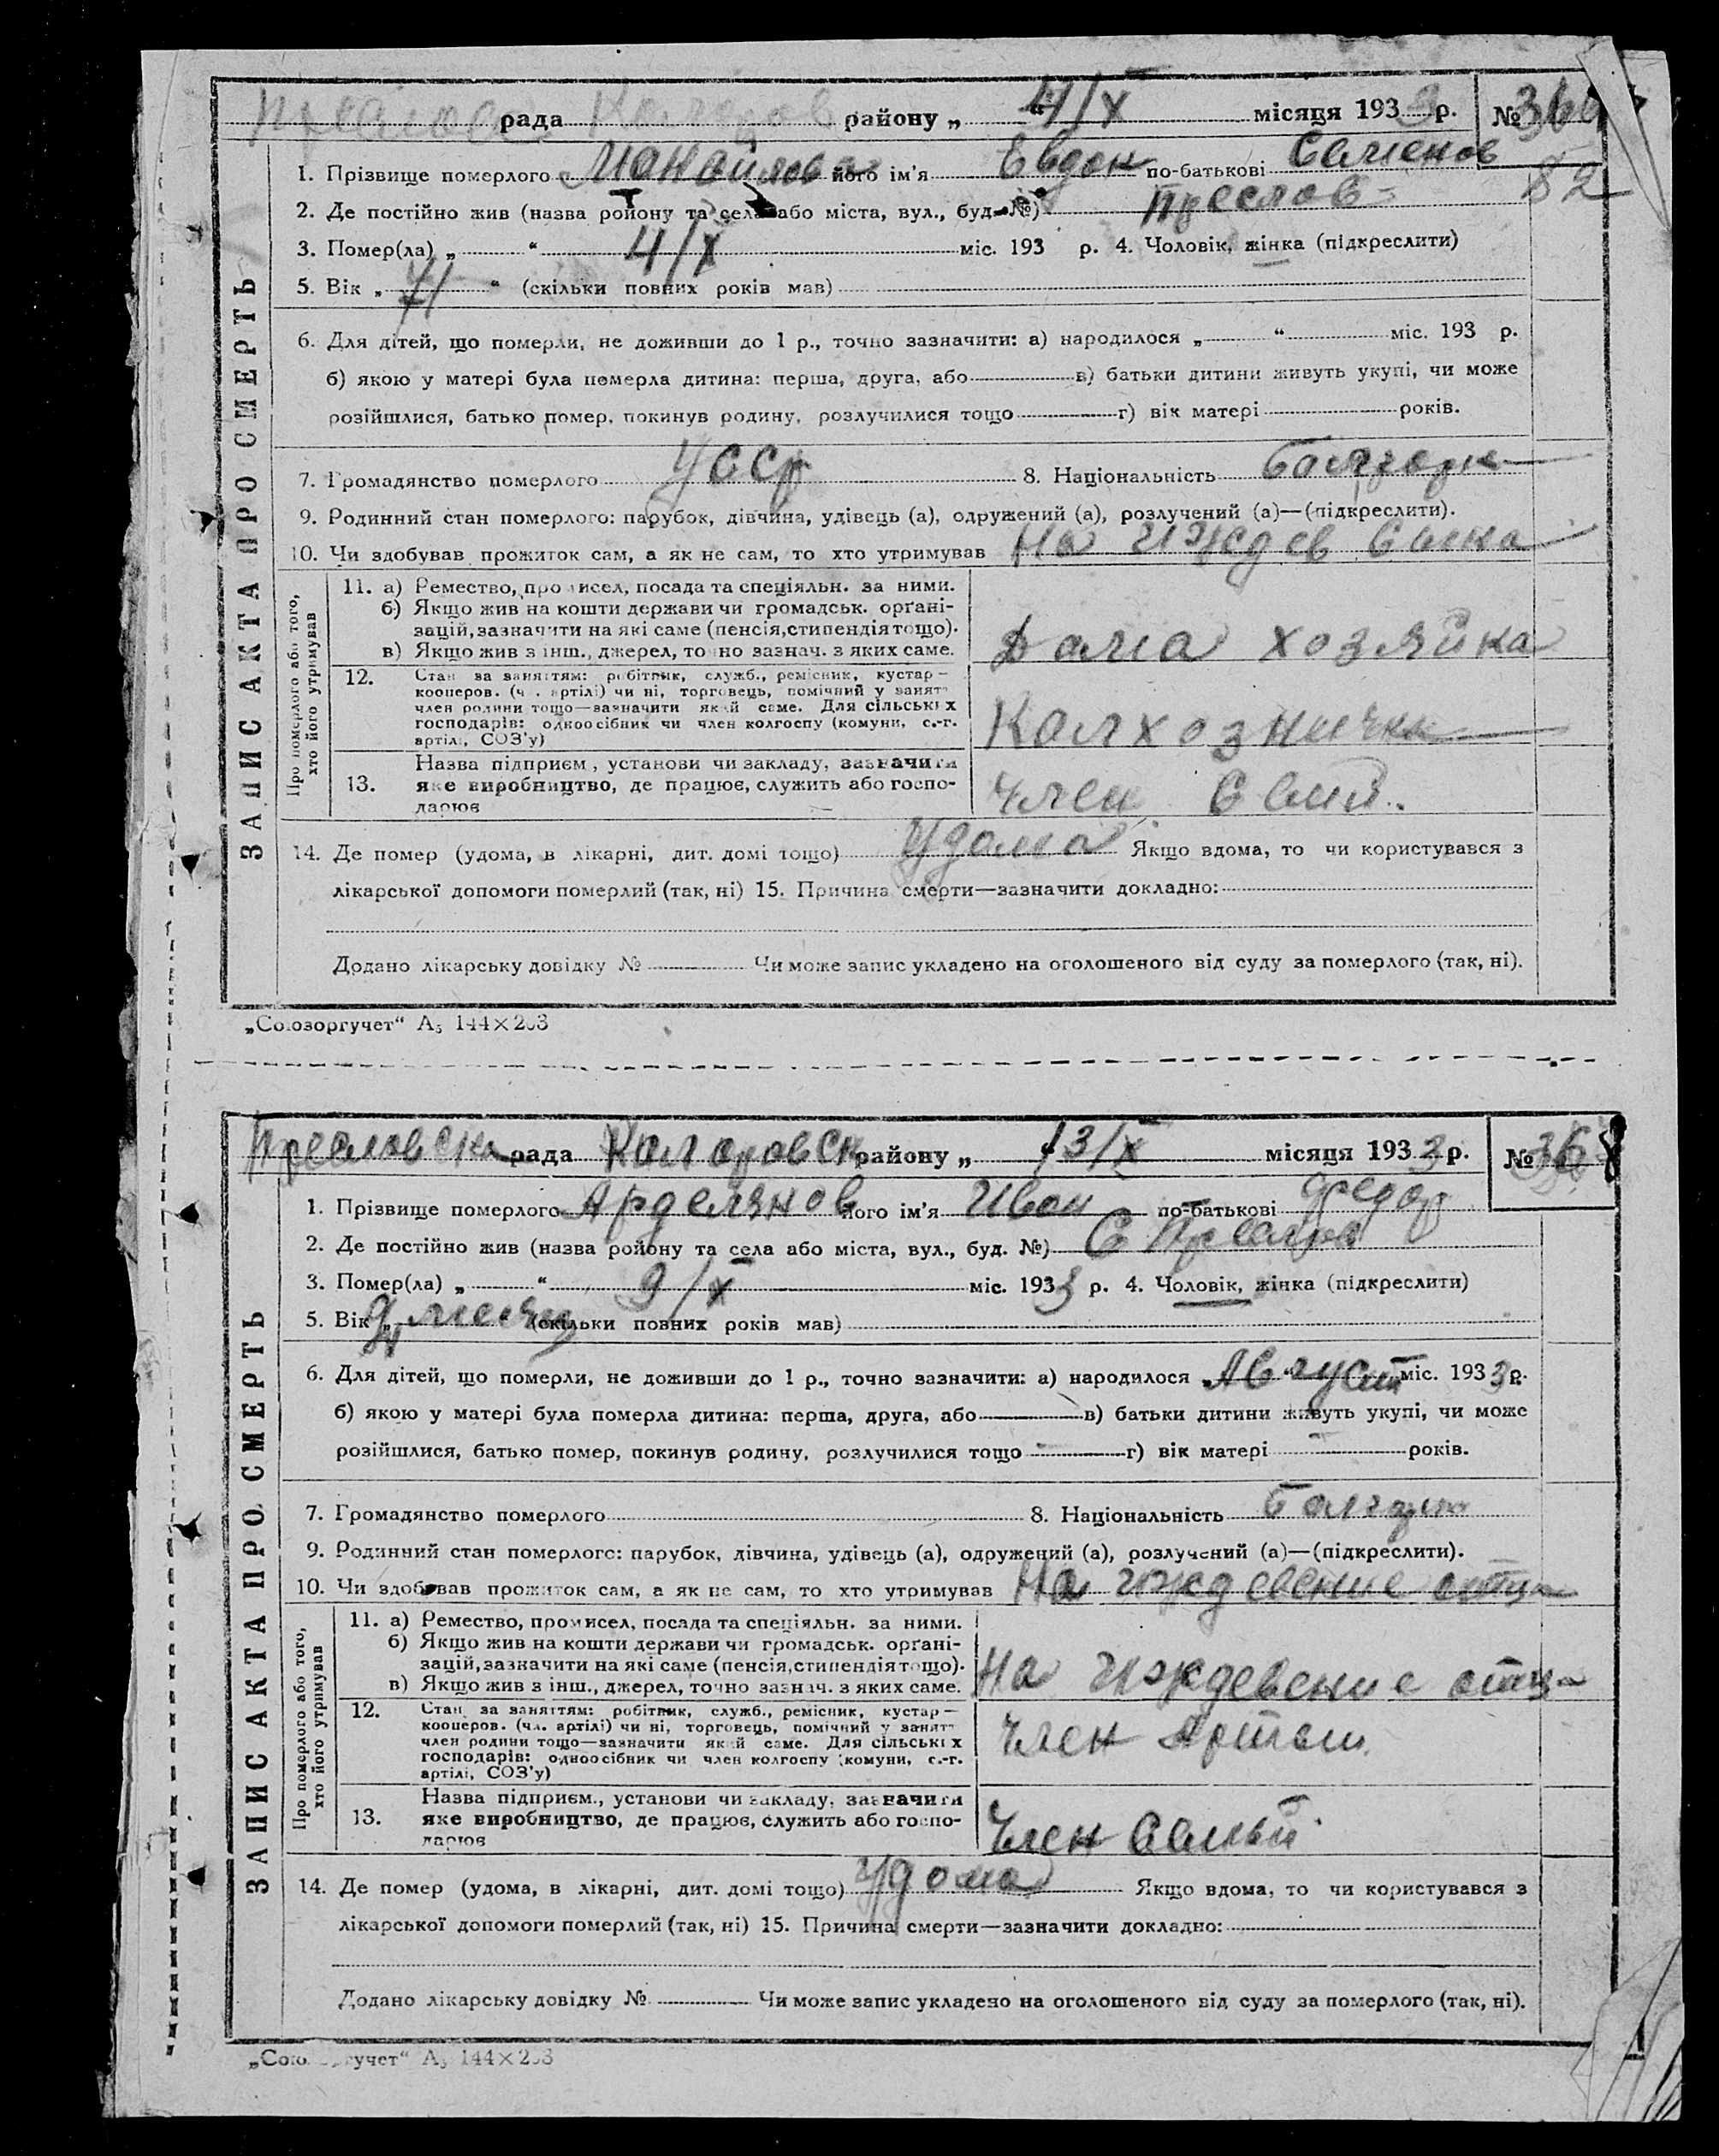 рада района „ 4/X місяця 1933 р. №
1. Прізвище померлого Манойлова його ім'я Евдок по-батькові Семенов
82
2. Де постійно жив (назва району та села або міста, вул., буд. №) Преслов
3. Помер(ла) „ “ 4/X міс. 193 р. 4. Чоловік, жінка (підкреслити)
5. Вік „ 71 “ (скільки повних років мав)
6. Для дітей, що померли, не доживши до 1 р., точно зазначити: а) народилося „ “ міс. 193 р.
б) якою у матері була померла дитина: перша, друга, або в) батьки дитини живуть укупі, чи може
розійшлися, батько помер, покинув родину, розлучилися тощо г) вік матері років.
7. Громадянство померлого УССр 8. Національність болгарк
9. Родинний стан померлого: парубок, дівчина, удівець (а), одружений (а), розлучений (а)—(підкреслити).
10. Чи здобував прожиток сам, а як не сам, то хто утримував На иждев Сина
ЗАПИС АКТА ПРО СМЕРТЬ
Про померлого або того, хто його утримував
11. а) Ремество, промисел, посада та спеціяльн. за ними.
б) Якщо жив на кошти держави чи громадськ. орґані-
зацій, зазначити на які саме (пенсія, стипендія тощо).
в) Якщо жив з інш., джерел, точно зазнач. з яких саме.
Дома хозяйка
12. Стан за заняттям: робітник, служб., ремісник, кустар—
кооперов. (чл. артілі) чи ні, торговець, помічний у занят
член родини тощо—зазначити який саме. Для сільських
господарів: одноосібник чи член колгоспу (комуни, с.-г.
артілі, СОЗ'у)
Колхозничка
13. Назва підприєм., установи чи закладу, зазначити
яке виробництво, де працює, служить або госпо-
дарює
член Семй.
14. Де помер (удома, в лікарні, дит. домі тощо) Удома Якщо вдома, то чи користувався з
лікарської допомоги померлий (так, ні) 15. Причина смерти—зазначити докладно:
Додано лікарську довідку № Чи може запис укладено на оголошеного від суду за померлого (так, ні).
„Союзоргучет“ А₅ 144×203
Преславска рада Колоровск району „ 13/X місяця 1933 р. № 368
1. Прізвище померлого Арделянов його ім'я Иван по-батькові Федор
2. Де постійно жив (назва району та села або міста, вул., буд. №) С Преслав
3. Помер(ла) „ “ 9/X міс. 1933 р. 4. Чоловік, жінка (підкреслити)
5. Вік „ 2 месяц (скільки повних років мав)
6. Для дітей, що померли, не доживши до 1 р., точно зазначити: а) народилося „ Август міс. 1933 р.
б) якою у матері була померла дитина: перша, друга, або в) батьки дитини живуть укупі, чи може
розійшлися, батько помер, покинув родину, розлучилися тощо г) вік матері років.
7. Громадянство померлого 8. Національність Болгарин
9. Родинний стан померлого: парубок, дівчина, удівець (а), одружений (а), розлучений (а)—(підкреслити).
10. Чи здобував прожиток сам, а як не сам, то хто утримував На иждевение отца
ЗАПИС АКТА ПРО СМЕРТЬ
Про померлого або того, хто його утримував
11. а) Ремество, промисел, посада та спеціяльн. за ними.
б) Якщо жив на кошти держави чи громадськ. орґані-
зацій, зазначити на які саме (пенсія, стипендія тощо).
в) Якщо жив з інш., джерел, точно зазнач. з яких саме.
На иждевение отца
12. Стан за заняттям: робітник, служб., ремісник, кустар—
кооперов. (чл. артілі) чи ні, торговець, помічний у занят
член родини тощо—зазначити який саме. Для сільських
господарів: одноосібник чи член колгоспу (комуни, с.-г.
артілі, СОЗ'у)
Член Артели
13. Назва підприєм., установи чи закладу, зазначити
яке виробництво, де працює, служить або госпо-
дарює
Член Семьи
14. Де помер (удома, в лікарні, дит. домі тощо) Удома Якщо вдома, то чи користувався з
лікарської допомоги померлий (так, ні) 15. Причина смерти—зазначити докладно:
Додано лікарську довідку № Чи може запис укладено на оголошеного від суду за померлого (так, ні).
„Союзоргучет“ А₅ 144×203